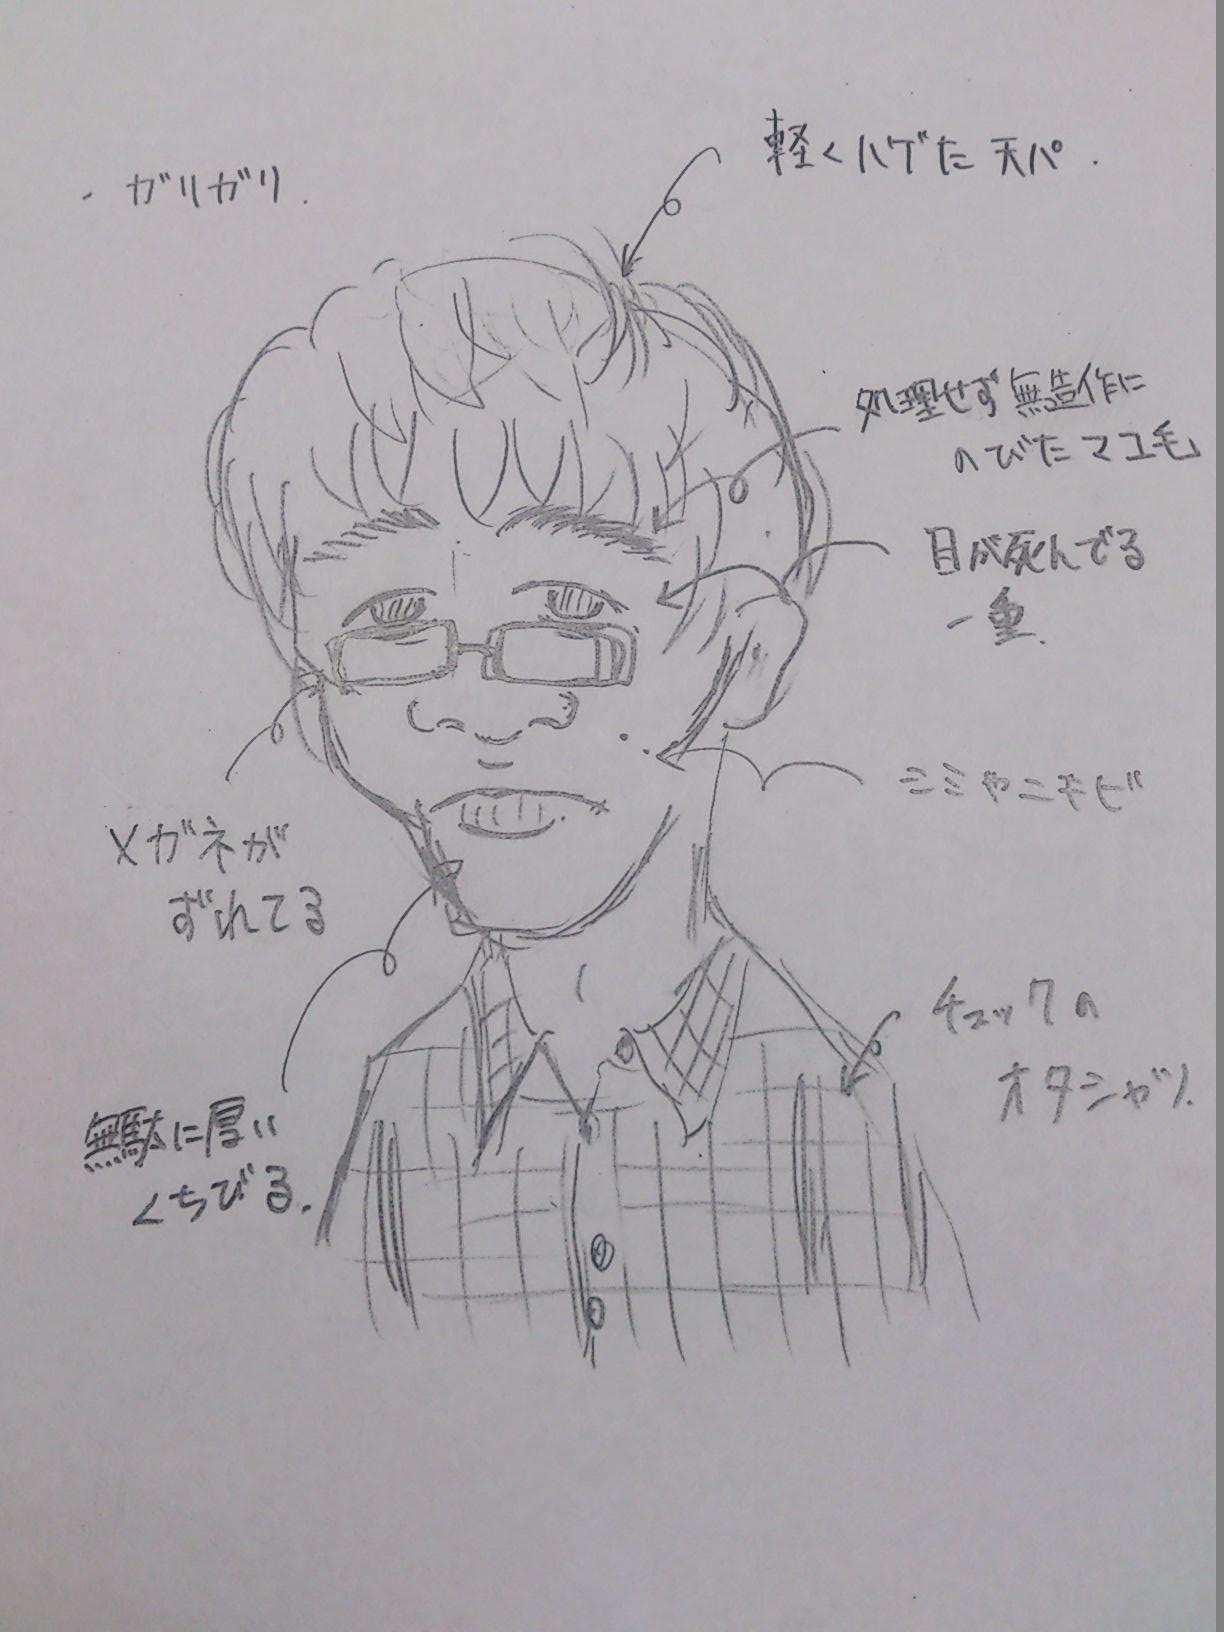 ・ガリガリ.
軽くハゲた天パ.
処理せず無造作に
のびたマユ毛
目が死んでる
一重.
シミやニキビ
メガネが
ずれてる
チェックの
オタシャツ.
無駄に厚い
くちびる.